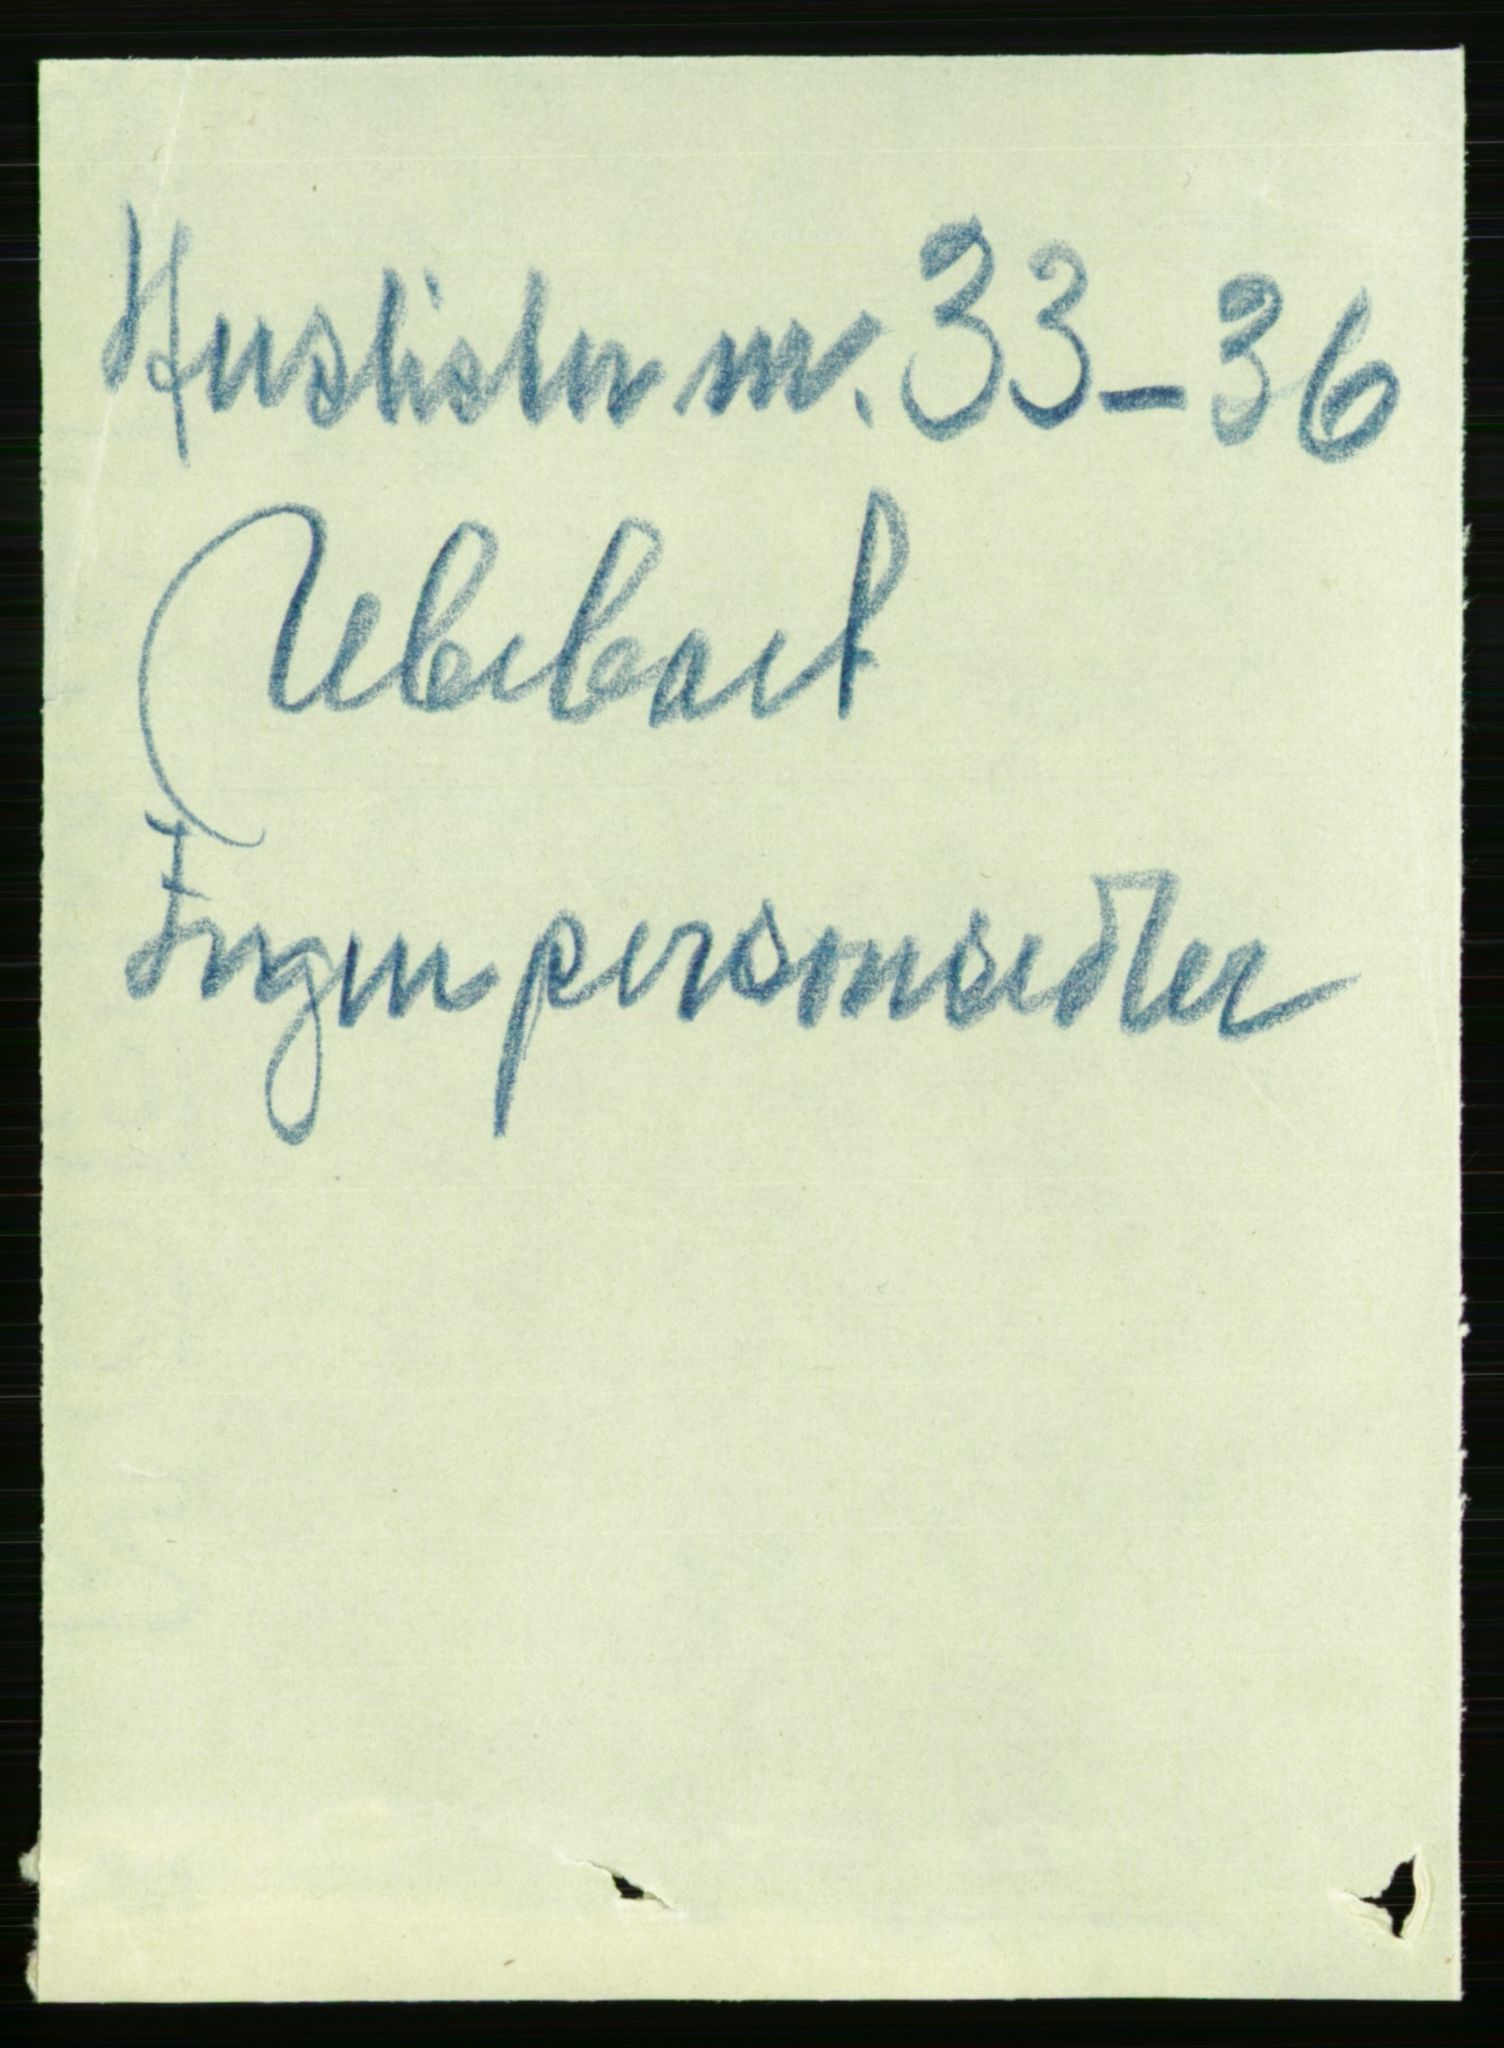 Huslister nr. 33–36
Ubebodt
Ingen personsedler